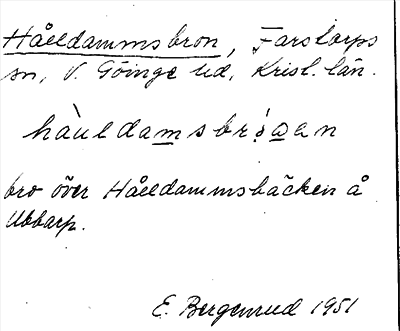 Hålldammsbron, Farstorps
sn, V. Göinge hd, Kristl. län.
hàuldamsbr
bro över Hålldammsbäcken å
Ubbarp.
E. Bergenrud 1951